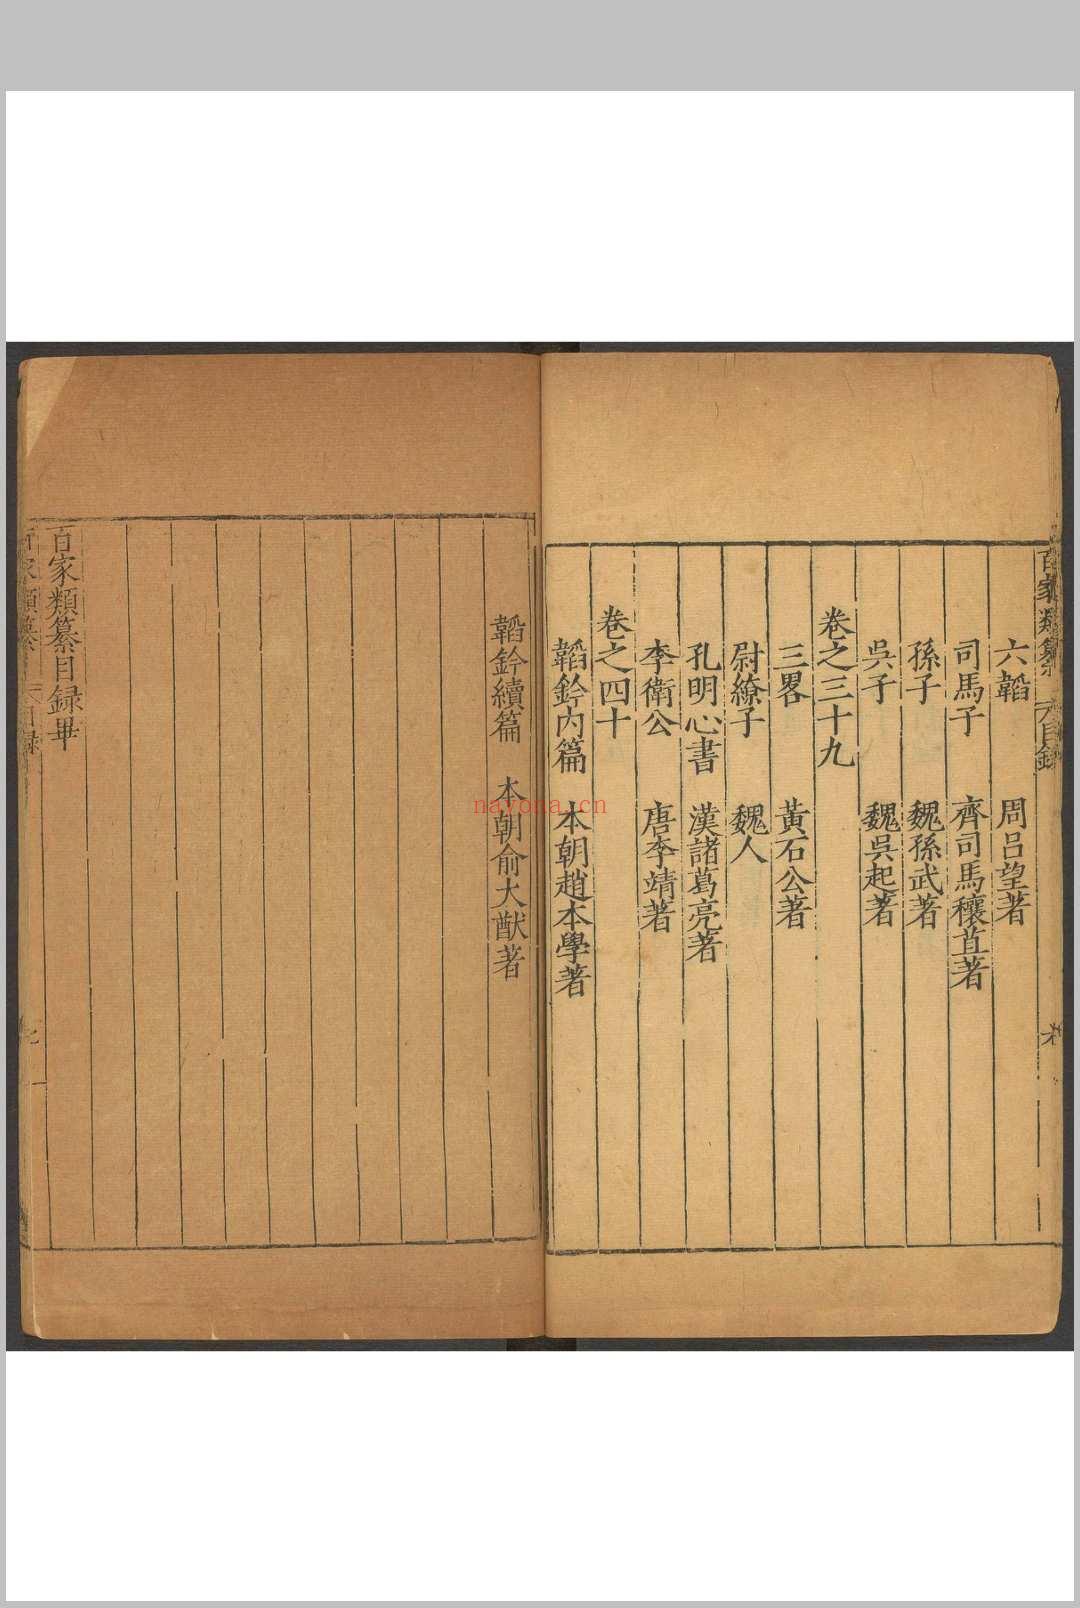 百家類纂 目錄
六韜 周呂望著
司馬子 齊司馬穰苴著
孫子 魏孫武著
吳子 魏吳起著
卷之三十九
三畧 黃石公著
尉繚子 魏人
孔明心書 漢諸葛亮著
李衛公 唐李靖著
卷之四十
韜鈐內篇 本朝趙本學著
韜鈐續篇 本朝俞大猷著
百家類纂目録畢
nayona.cn